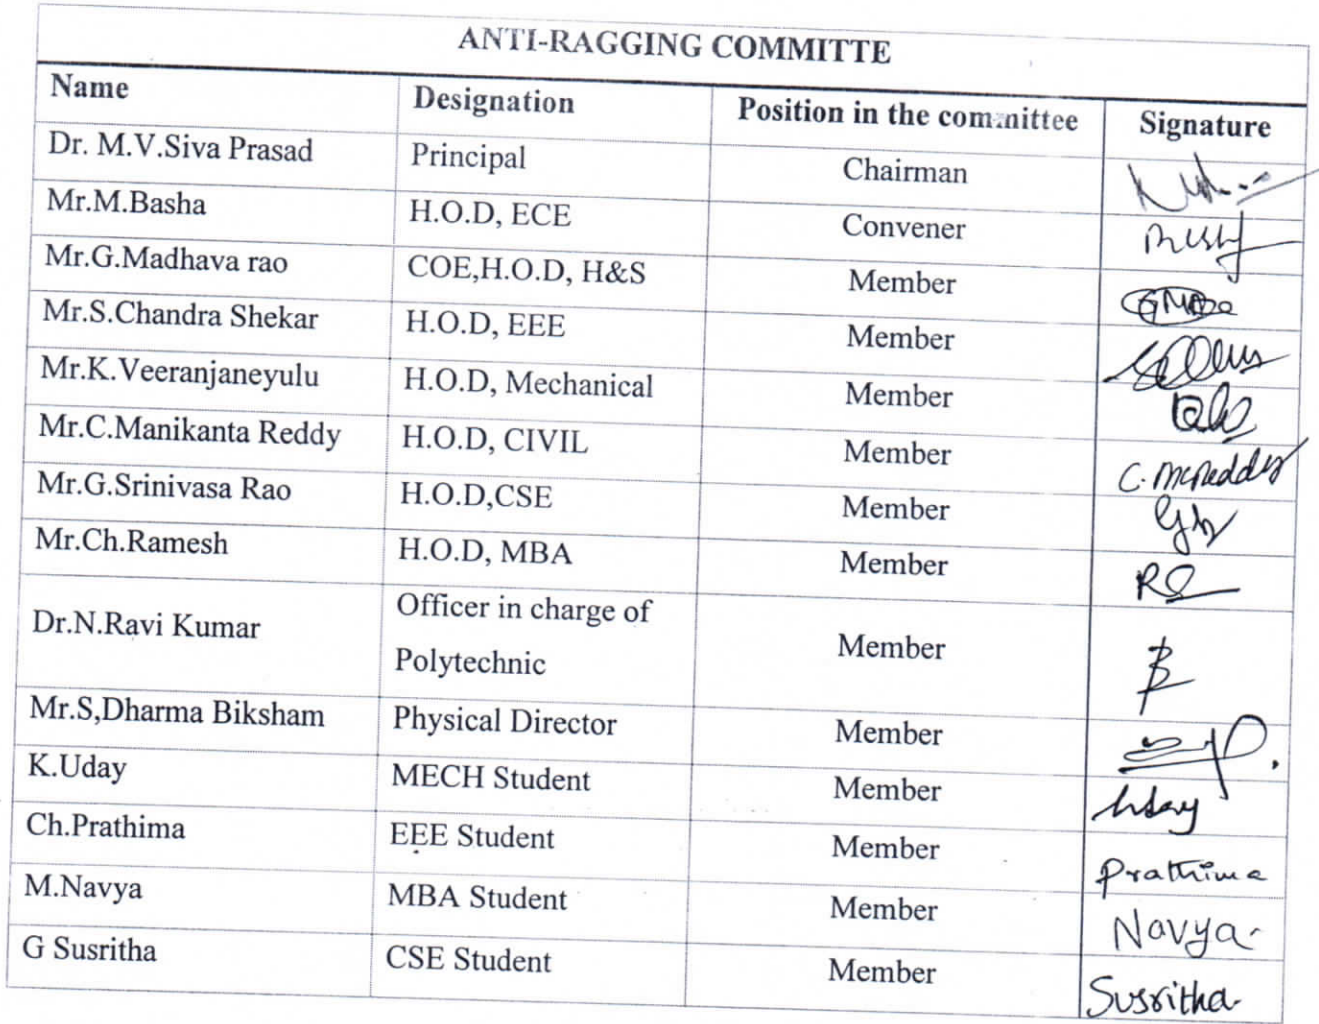 ANTI-RAGGING COMMITTE
Name Designation Position in the committee Signature
Dr. M.V.Siva Prasad Principal Chairman
Mr.M.Basha H.O.D, ECE Convener
Mr.G.Madhava rao COE,H.O.D, H&S Member
Mr.S.Chandra Shekar H.O.D, EEE Member
Mr.K.Veeranjaneyulu H.O.D, Mechanical Member
Mr.C.Manikanta Reddy H.O.D, CIVIL Member
Mr.G.Srinivasa Rao H.O.D,CSE Member
Mr.Ch.Ramesh H.O.D, MBA Member
Dr.N.Ravi Kumar Officer in charge of Member
Polytechnic
Mr.S,Dharma Biksham Physical Director Member
K.Uday MECH Student Member Uday
Ch.Prathima EEE Student Member Prathima
M.Navya MBA Student Member Navya
G Susritha CSE Student Member Susritha